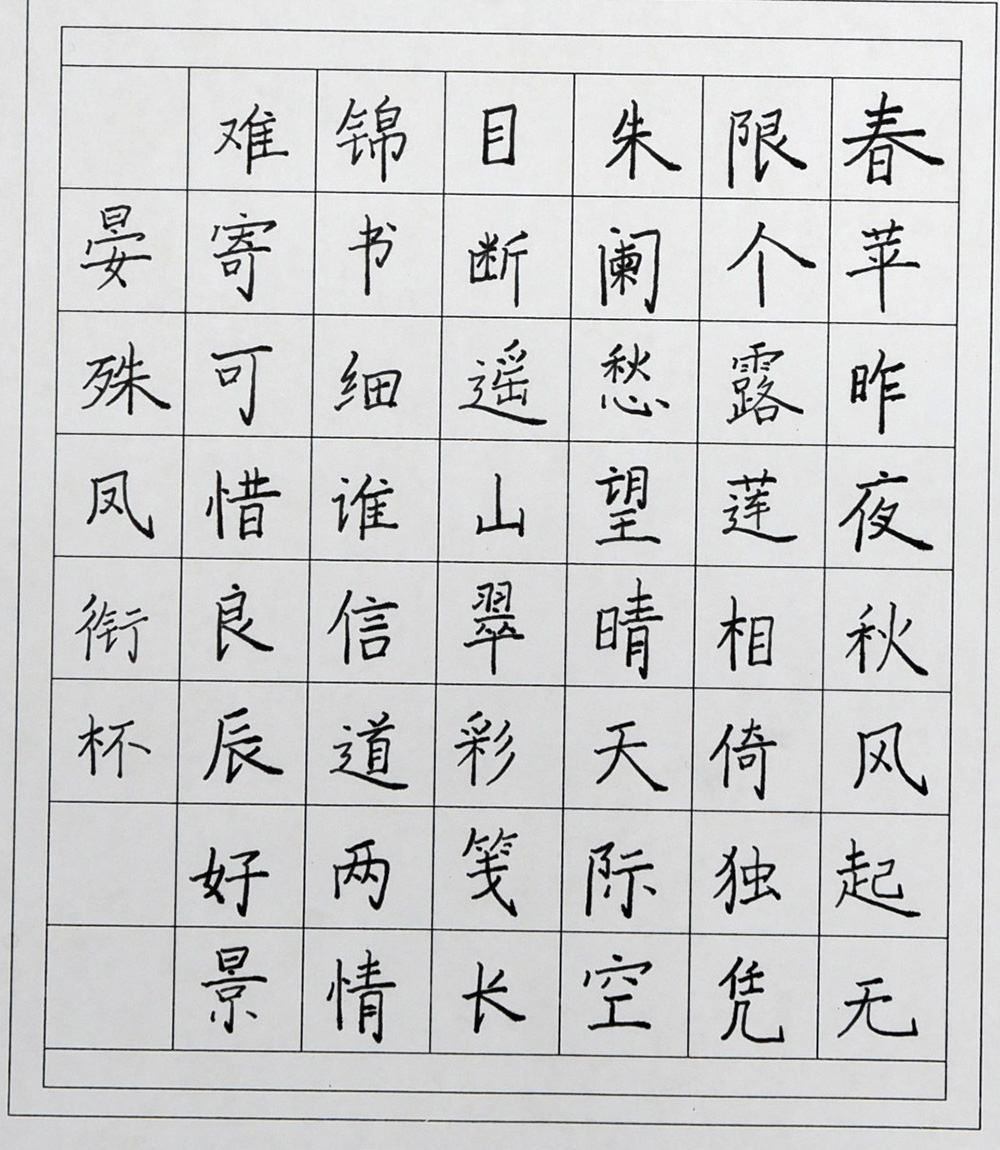 春苹昨夜秋风起无
限个露莲相倚独凭
朱阑愁望晴天际空
目断遥山翠彩笺长
锦书细谁信道两情
难寄可惜良辰好景
晏殊凤衔杯